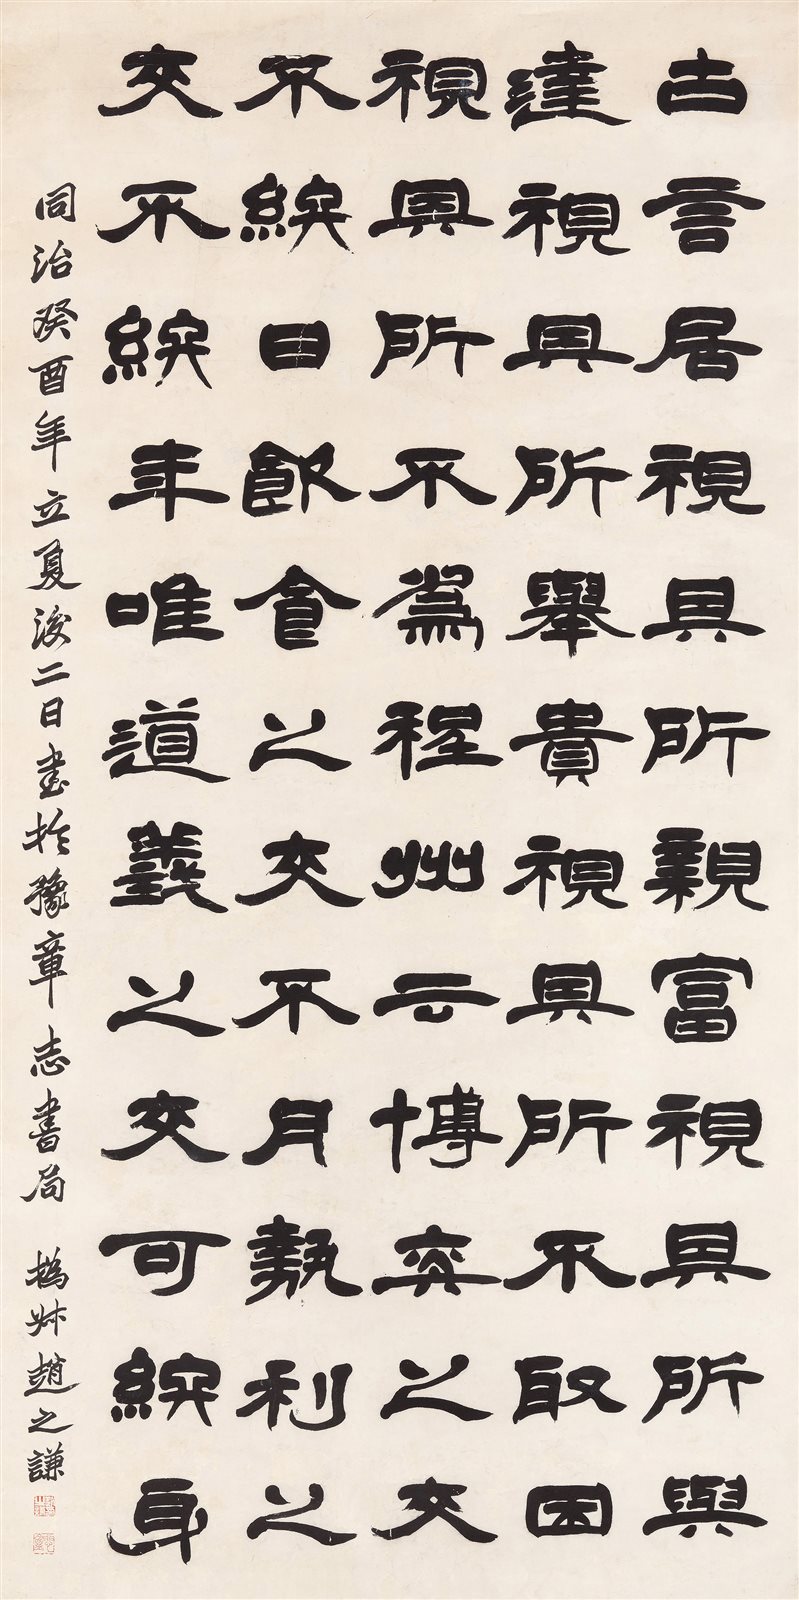 古言居視其所親富視其所與
達視其所舉貴視其所不取困
視其所不為程州云博弈之交
不終日飲食之交不月勢利之
交不終年唯道義之交可終身
同治癸酉年立夏後二日書於豫章志書局 撝叔趙之謙